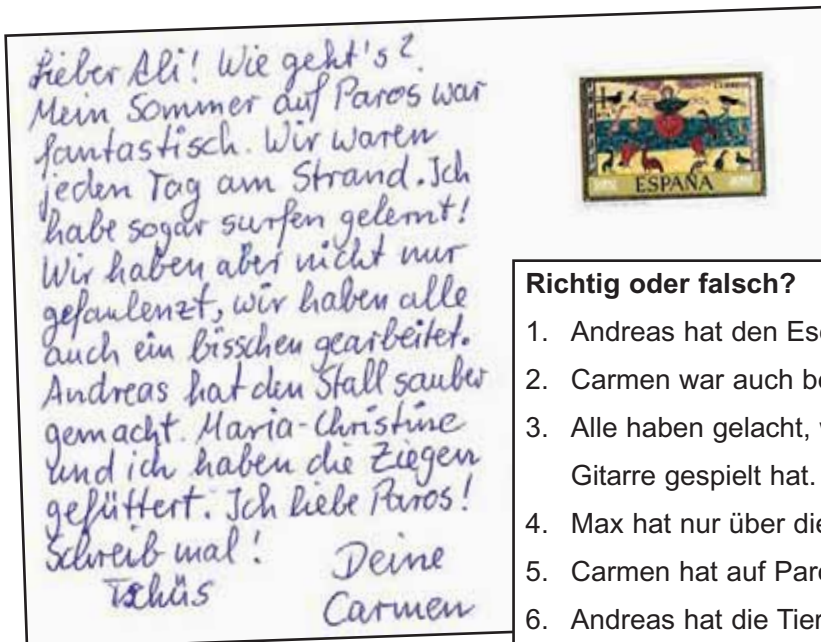 Lieber Ali! Wie geht's?
Mein Sommer auf Paros war
fantastisch. Wir waren
jeden Tag am Strand. Ich
habe sogar surfen gelernt!
Wir haben aber nicht nur
gefaulenzt, wir haben alle
auch ein bisschen gearbeitet.
Andreas hat den Stall sauber
gemacht. Maria-Christine
und ich haben die Ziegen
gefüttert. Ich liebe Paros!
Schreib mal!
Tschüs
Deine
Carmen
ESPAÑA
Richtig oder falsch?
1. Andreas hat den
2. Carmen war auch
3. Alle haben gelacht,
Gitarre gespielt hat.
4. Max hat nur über
5. Carmen hat auf
6. Andreas hat die